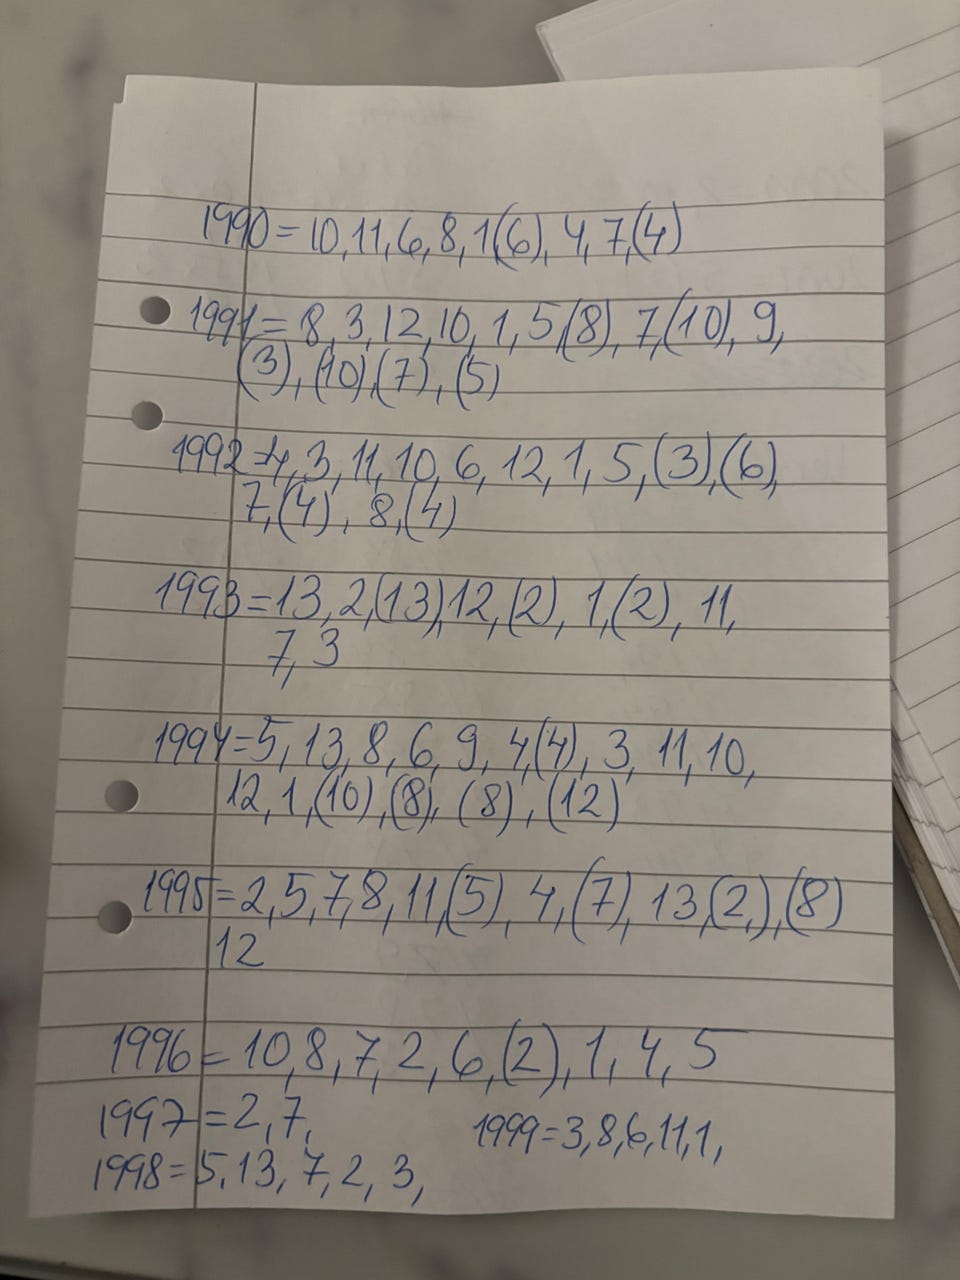 1990=10,11,6,8,1(6),4,7,(4)
1991=8,3,12,10,1,5(8),7,(10),9,
(3),(10),(7),(5)
1992=4,3,11,10,6,12,1,5,(3),(6),
7,(4),8,(4)
1993=13,2,(13),12,(2),1,(2),11,
7,3
1994=5,13,8,6,9,4,(4),3,11,10,
12,1,(10),(8),(8),(12)
1995=2,5,7,8,11,(5),4,(7),13,(2,),(8)
12
1996=10,8,7,2,6,(2),1,4,5
1997=2,7,
1999=3,8,6,11,1,
1998=5,13,7,2,3,